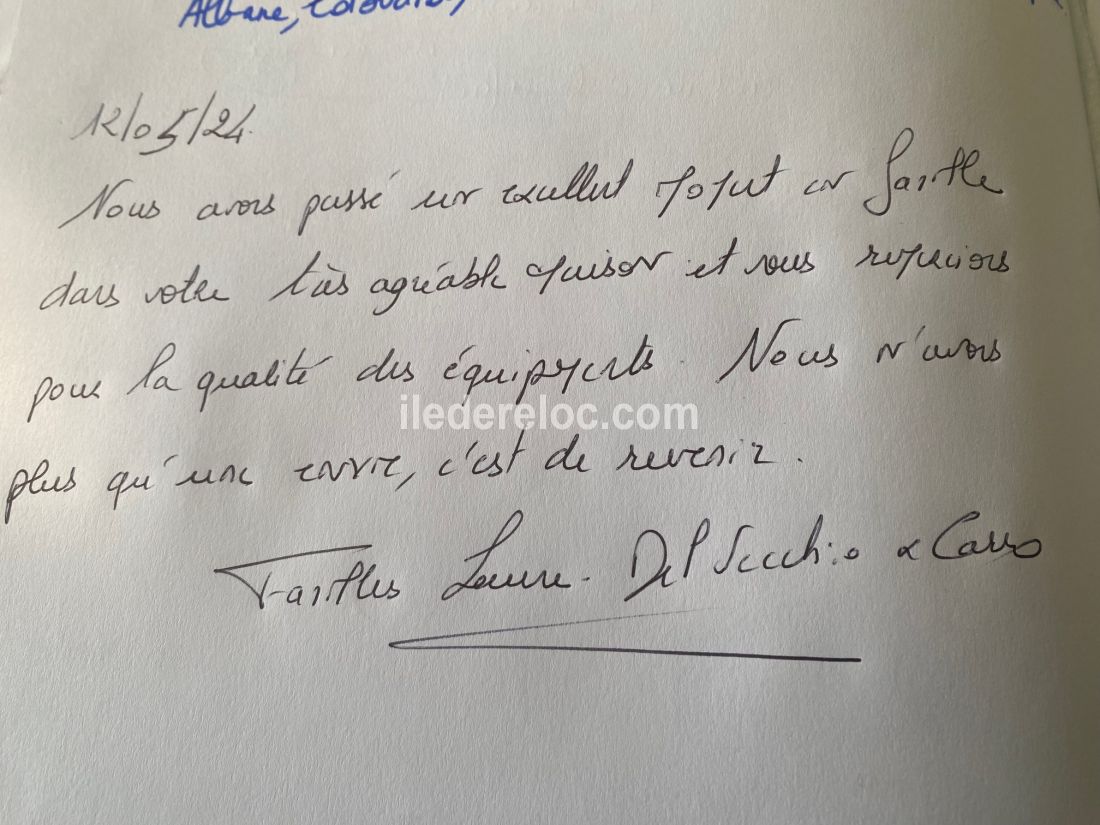 Albane,
12/05/24.
Nous avons passé un excellent moment en famille
dans votre très agréable maison et vous remercions
pour la qualité des équipements. Nous n'avons
iledereloc.com
plus qu'une envie, c'est de revenir.
Familles Del Vecchio & Carro